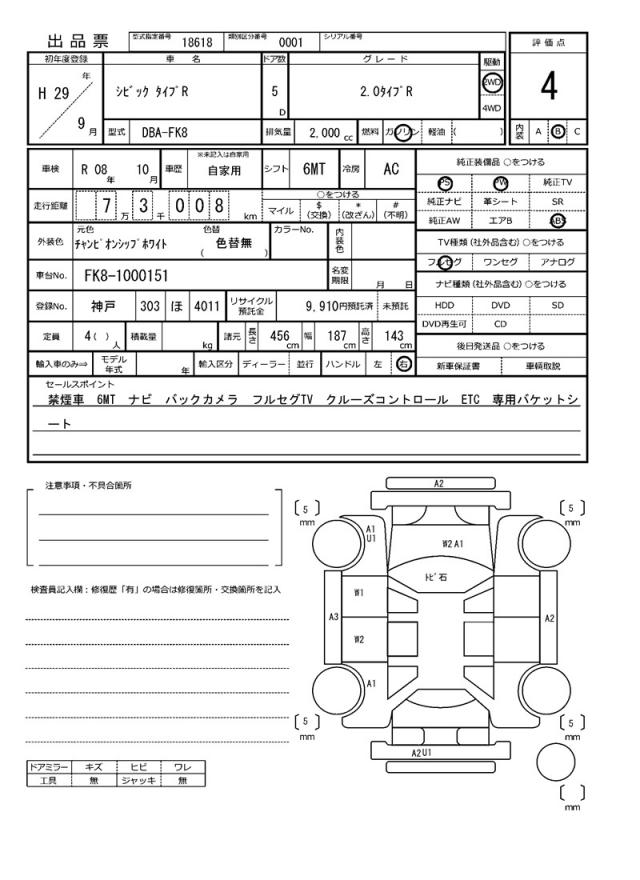 出品票
型式指定番号 18618 類別区分番号 0001 シリアル番号
評価点
4
内装 A B C
初年度登録 車名 ドア数 グレード 駆動
H 29 年 9 月
シビック タイプR 5 D 2.0タイプR 2WD 4WD
型式 DBA-FK8 排気量 2,000 cc 燃料 ガソリン 軽油 ( )
車検 R 08 年 10 月 車歴 ※未記入は自家用 自家用 シフト 6MT 冷房 AC
走行距離 7 万 3 千 0 0 8 km
○をつける
マイル $ (交換) * (改ざん) # (不明)
外装色 元色 チャンピオンシップホワイト 色替 ( 色替無 ) カラーNo. 内装色
車台No. FK8-1000151 名変期限 月 日
登録No. 神戸 303 ほ 4011 リサイクル預託金 9,910円預託済 未預託
定員 4( ) 人 積載量 kg 諸元 長さ 456 cm 幅 187 cm 高さ 143 cm
輸入車のみ⇒ モデル年式 年 輸入区分 ディーラー 並行 ハンドル 左 右
純正装備品 ○をつける
PS PW 純正TV
純正ナビ 革シート SR
純正AW エアB ABS
TV種類 (社外品含む) ○をつける
フルセグ ワンセグ アナログ
ナビ種類 (社外品含む) ○をつける
HDD DVD SD
DVD再生可 CD
後日発送品 ○をつける
新車保証書 車輌取説
セールスポイント
禁煙車 6MT ナビ バックカメラ フルセグTV クルーズコントロール ETC 専用バケットシ
ート
注意事項・不具合箇所
検査員記入欄：修復歴「有」の場合は修復箇所・交換箇所を記入
ドアミラー キズ ヒビ ワレ
工具 無 ジャッキ 無
A2
[ 5 ] mm
[ 5 ] mm
A1
U1
W2 A1
トビ石
W1
A3
A2
W2
A1
[ 5 ] mm
[ 5 ] mm
A2U1
[ ] mm